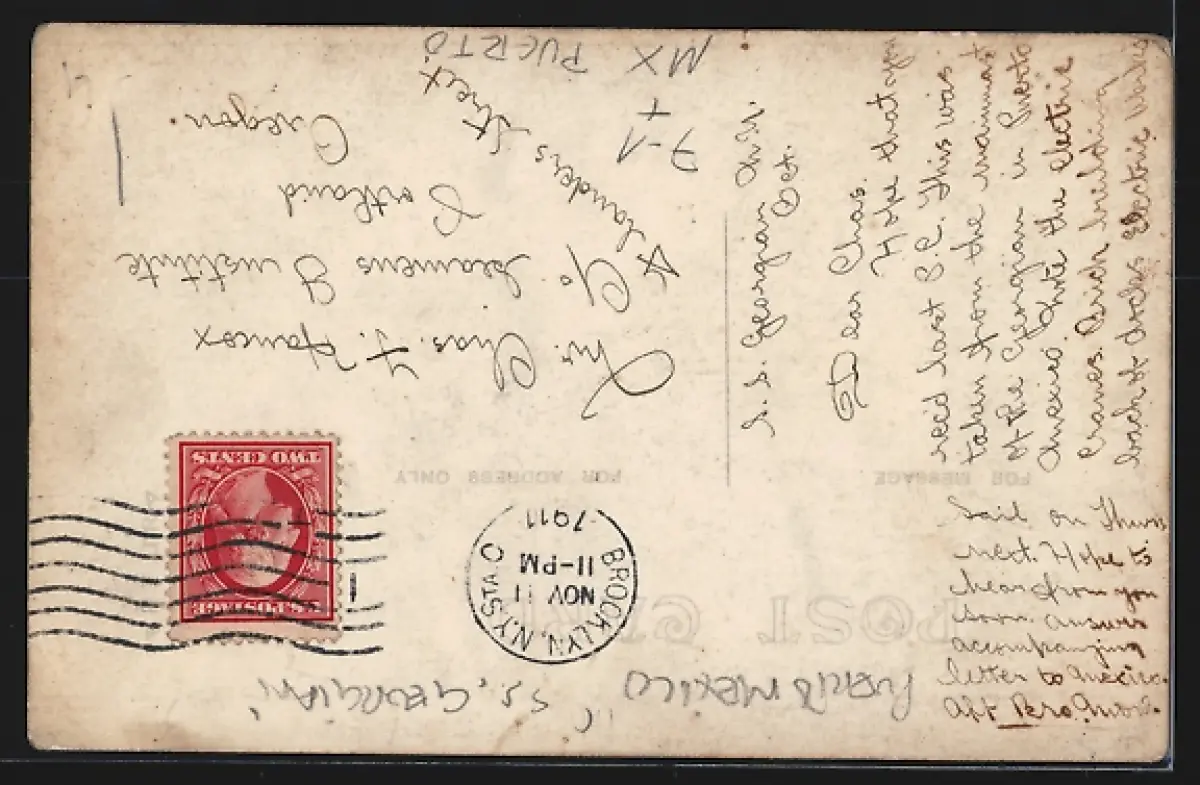 S.S. Georgian N.Y.
Oct.
Dear Chas.
Hope that you
rec'd last P.C. This was
taken from the mainmast
of the Georgian in Puerto
Mexico. Note the electric
cranes. Brick building
back of docks Electric Works
Sail on Thurs
next. Hope to
hear from you
soon. Answer
accompanying
letter to Mexico.
Mr. Chas. F. Hancox
C/o Seamens Institute
Flanders Street
Portland
Oregon.
POST CARD
FOR MESSAGE
FOR ADDRESS ONLY
BROOKLYN, N.Y. STA. C
NOV 1
11-PM
1911
U.S. POSTAGE
TWO CENTS
PUERTO MEXICO
"S.S. GEORGIAN"
MX PUERTO
7-1